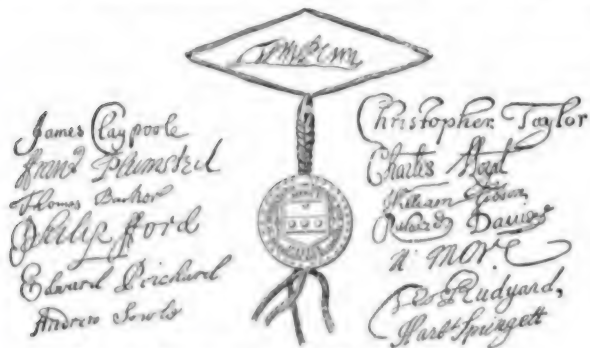 Wm Penn
James Claypoole
ffranc Plumsted
Thomas Barker
Philip fford
Edward Prichard
Andrew Sowle
Christopher Taylor
Charles Lloyd
William Gibson
Richard Davies
N More
Tho Rudyard,
Harbt Springett